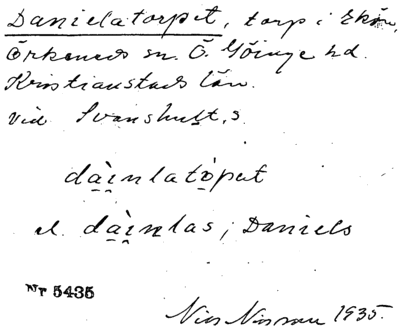 Danielstorpet, torp i Ekön,
Örkeneds sn. Ö. Göinge hd.
Kristianstads län.
vid Svanshult, s.
dàinlatòpət
el. dàinlas; Daniels
Nr 5435
Nils Nilsson 1935.